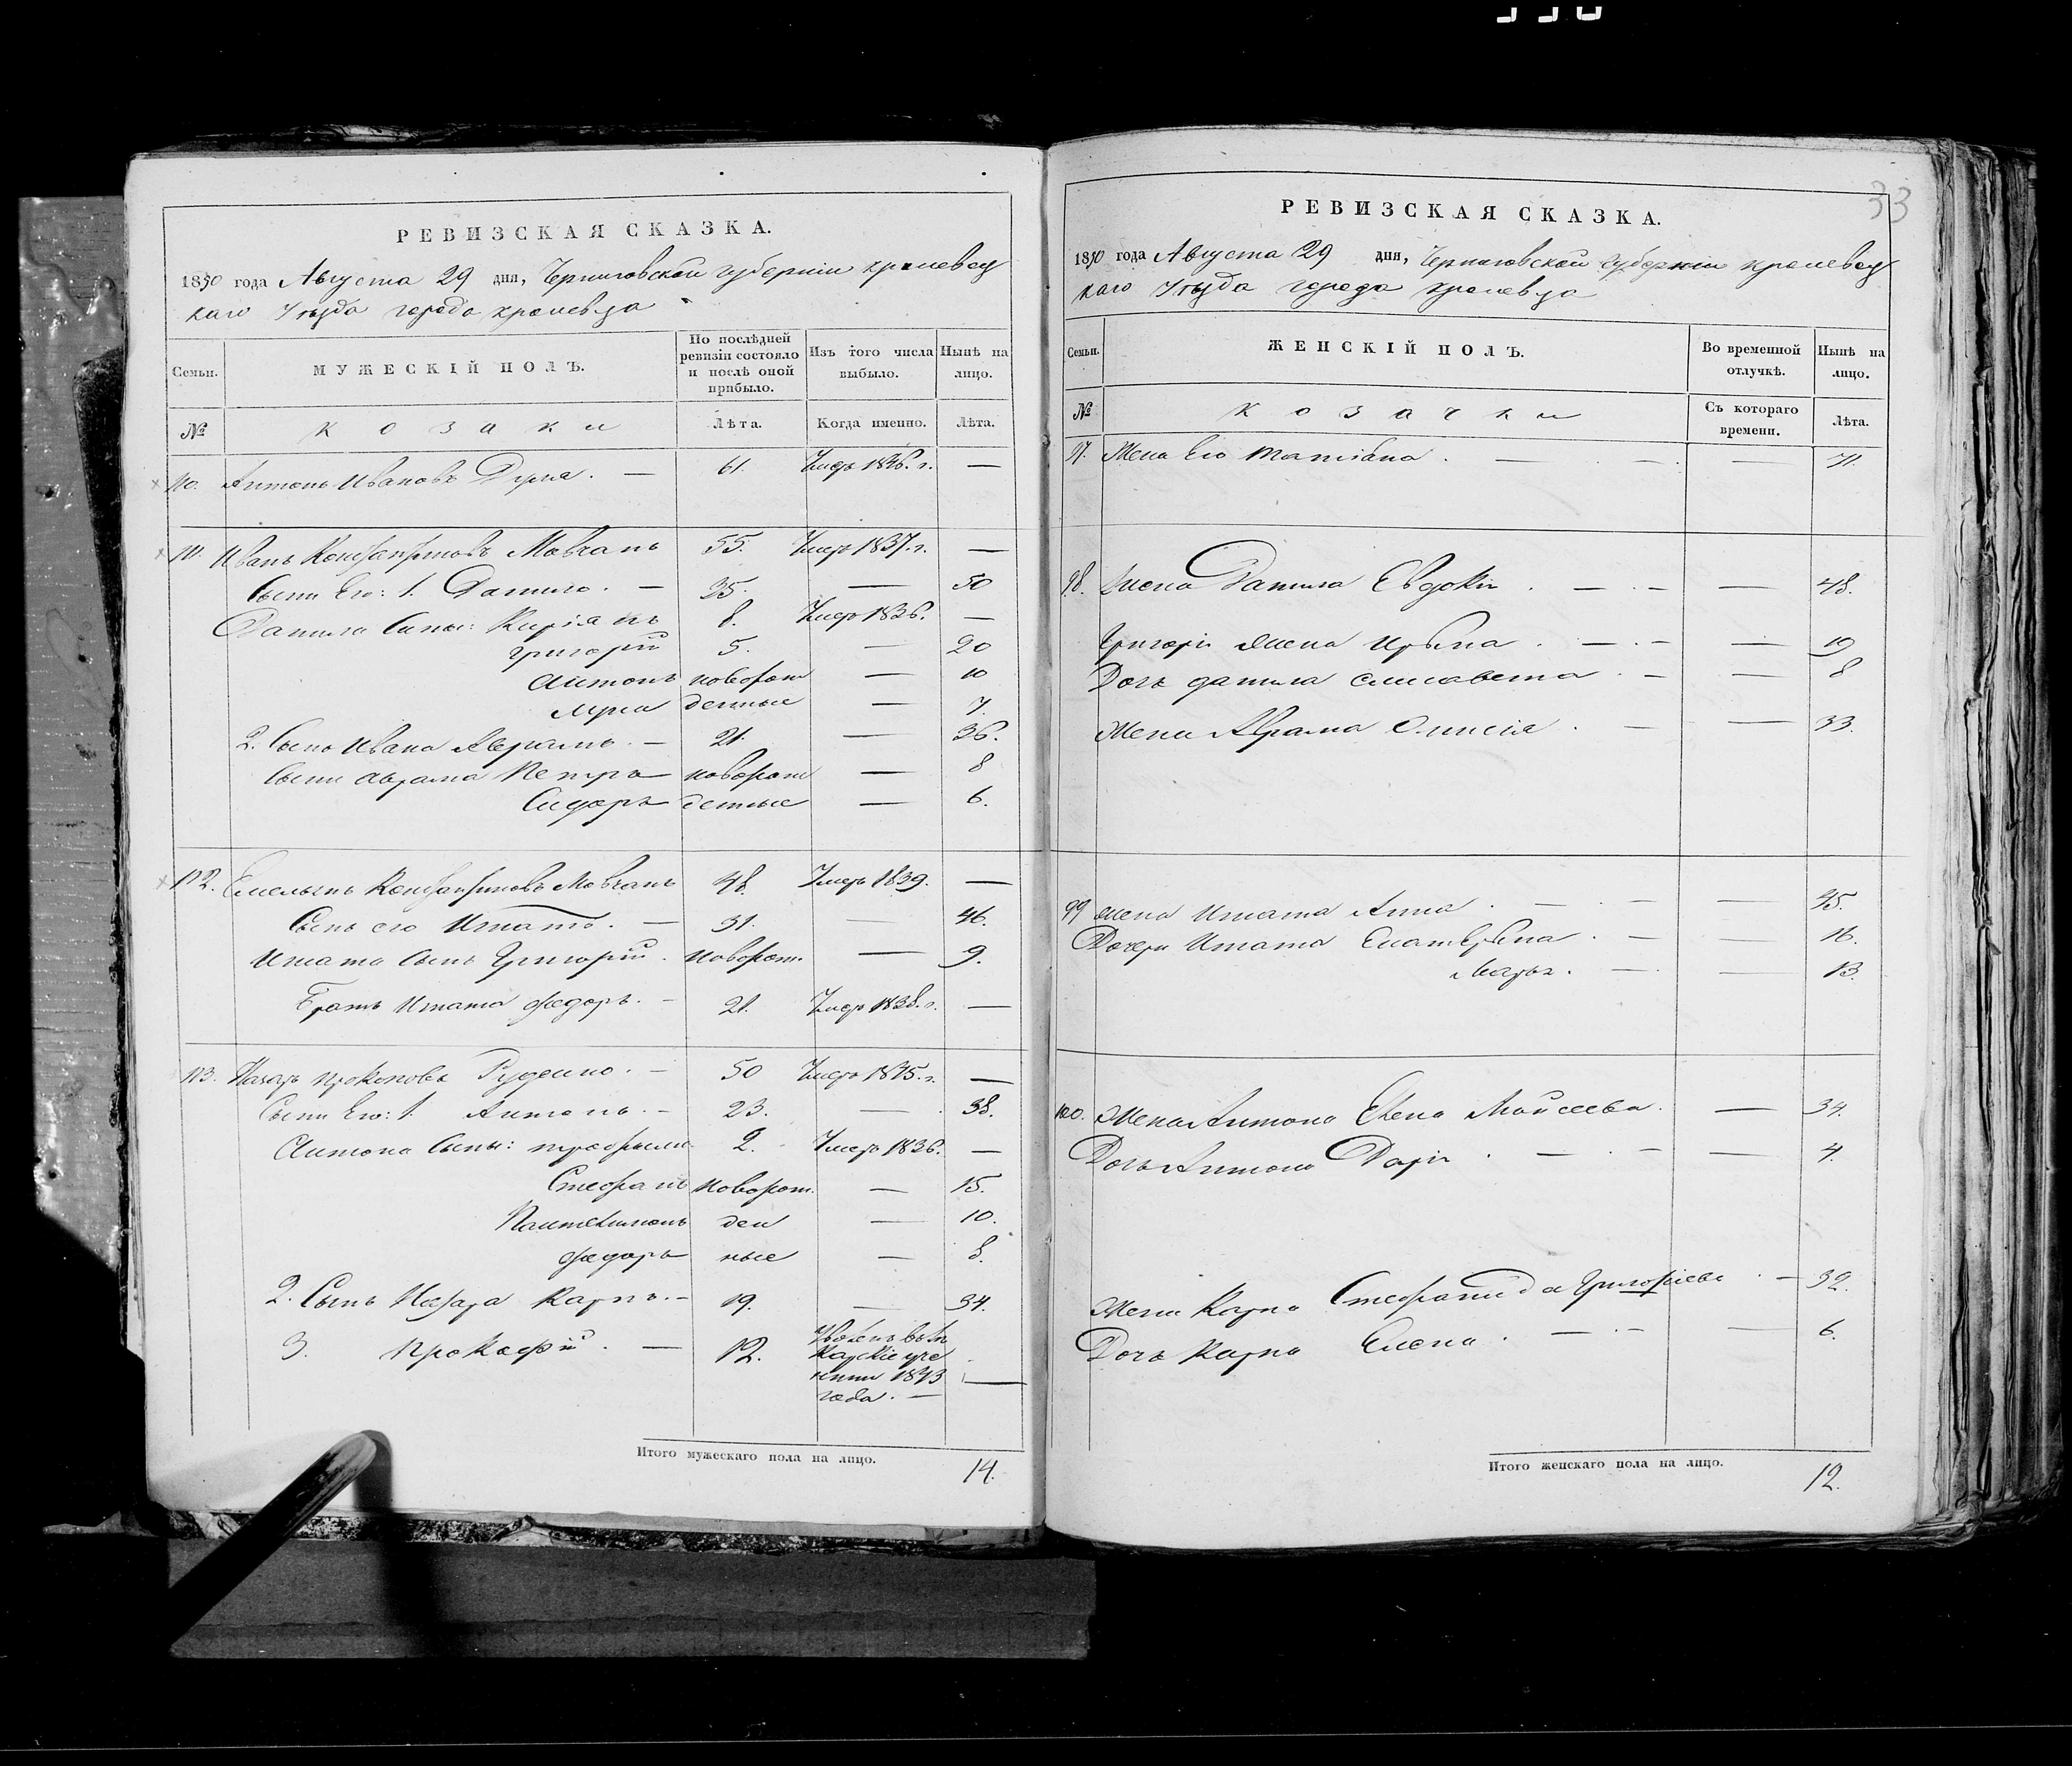 33
РЕВИЗСКАЯ СКАЗКА.
1850 года Августа 29 дня, Черниговской губерніи кролевец
каго Уѣзда города кролевца
Семьи. МУЖЕСКІЙ ПОЛЪ. По послѣдней ревизіи состояло и послѣ оной прибыло. Изъ того числа выбыло. Нынѣ на лицо.
№ козаки Лѣта. Когда именно. Лѣта.
110. Антонъ Ивановъ 61. Умеръ 1846. г. —
111. Иванъ Константиновъ Мовчанъ 55. Умеръ 1837. г. —
Сыны Его: 1. Данило. — 35. — 50
Данила Сыны: Киріанъ 8. Умеръ 1836. —
григорій 5. — 20
Антонъ новорож — 10
Лука денные — 7.
2. Сынъ Ивана Аврамъ. — 21. — 36.
Сыны Аврама Петръ новорож — 8
Сидоръ денные — 6.
112. Емельянъ Константиновъ Мовчанъ 48. Умеръ 1839. —
Сынъ его Игнатъ. — 31. — 46.
Игната Сынъ Григорій. новорож. — 9.
Братъ Игната Федоръ. — 21. Умеръ 1838. г. —
113. Назаръ Прокоповъ Руденко. — 50 Умеръ 1845. г. —
Сыны Его: 1. Антонъ. — 23. — 38.
Антона Сыны: 2. Умеръ 1836. —
Стефанъ новорож. — 15.
Пантелимонъ ден — 10.
Федоръ ные — 8.
2. Сынъ Назара Карпъ. — 19. — 34.
3. Прокофій. — 12. 1843 года. — —
Итого мужескаго пола на лицо. 14.
РЕВИЗСКАЯ СКАЗКА.
1850 года Августа 29 дня, Черниговской губерніи кролевец
каго Уѣзда города кролевца
Семьи. ЖЕНСКІЙ ПОЛЪ. Во временной отлучкѣ. Нынѣ на лицо.
№ козачки Съ котораго времени. Лѣта.
97. Жена Его Татіана. — — 71.
98. Жена Данила Евдокія. — — 48.
Григорія Жена Ирына. — — 19
Дочь данила Елисавета. — — 8
Жена Аврама — — 33.
99 Жена Игната Анна. — — 45.
Дочери Игната Екатерына. — — 16.
Марья. — — 13.
100. Жена Антона Елена Мойсеева. — 34.
Дочь Антона Дарія. — — 4.
Жена Карпа Стефанида Григоріева. — 32.
Дочь Карпа Елена. — — 6.
Итого женскаго пола на лицо. 12.